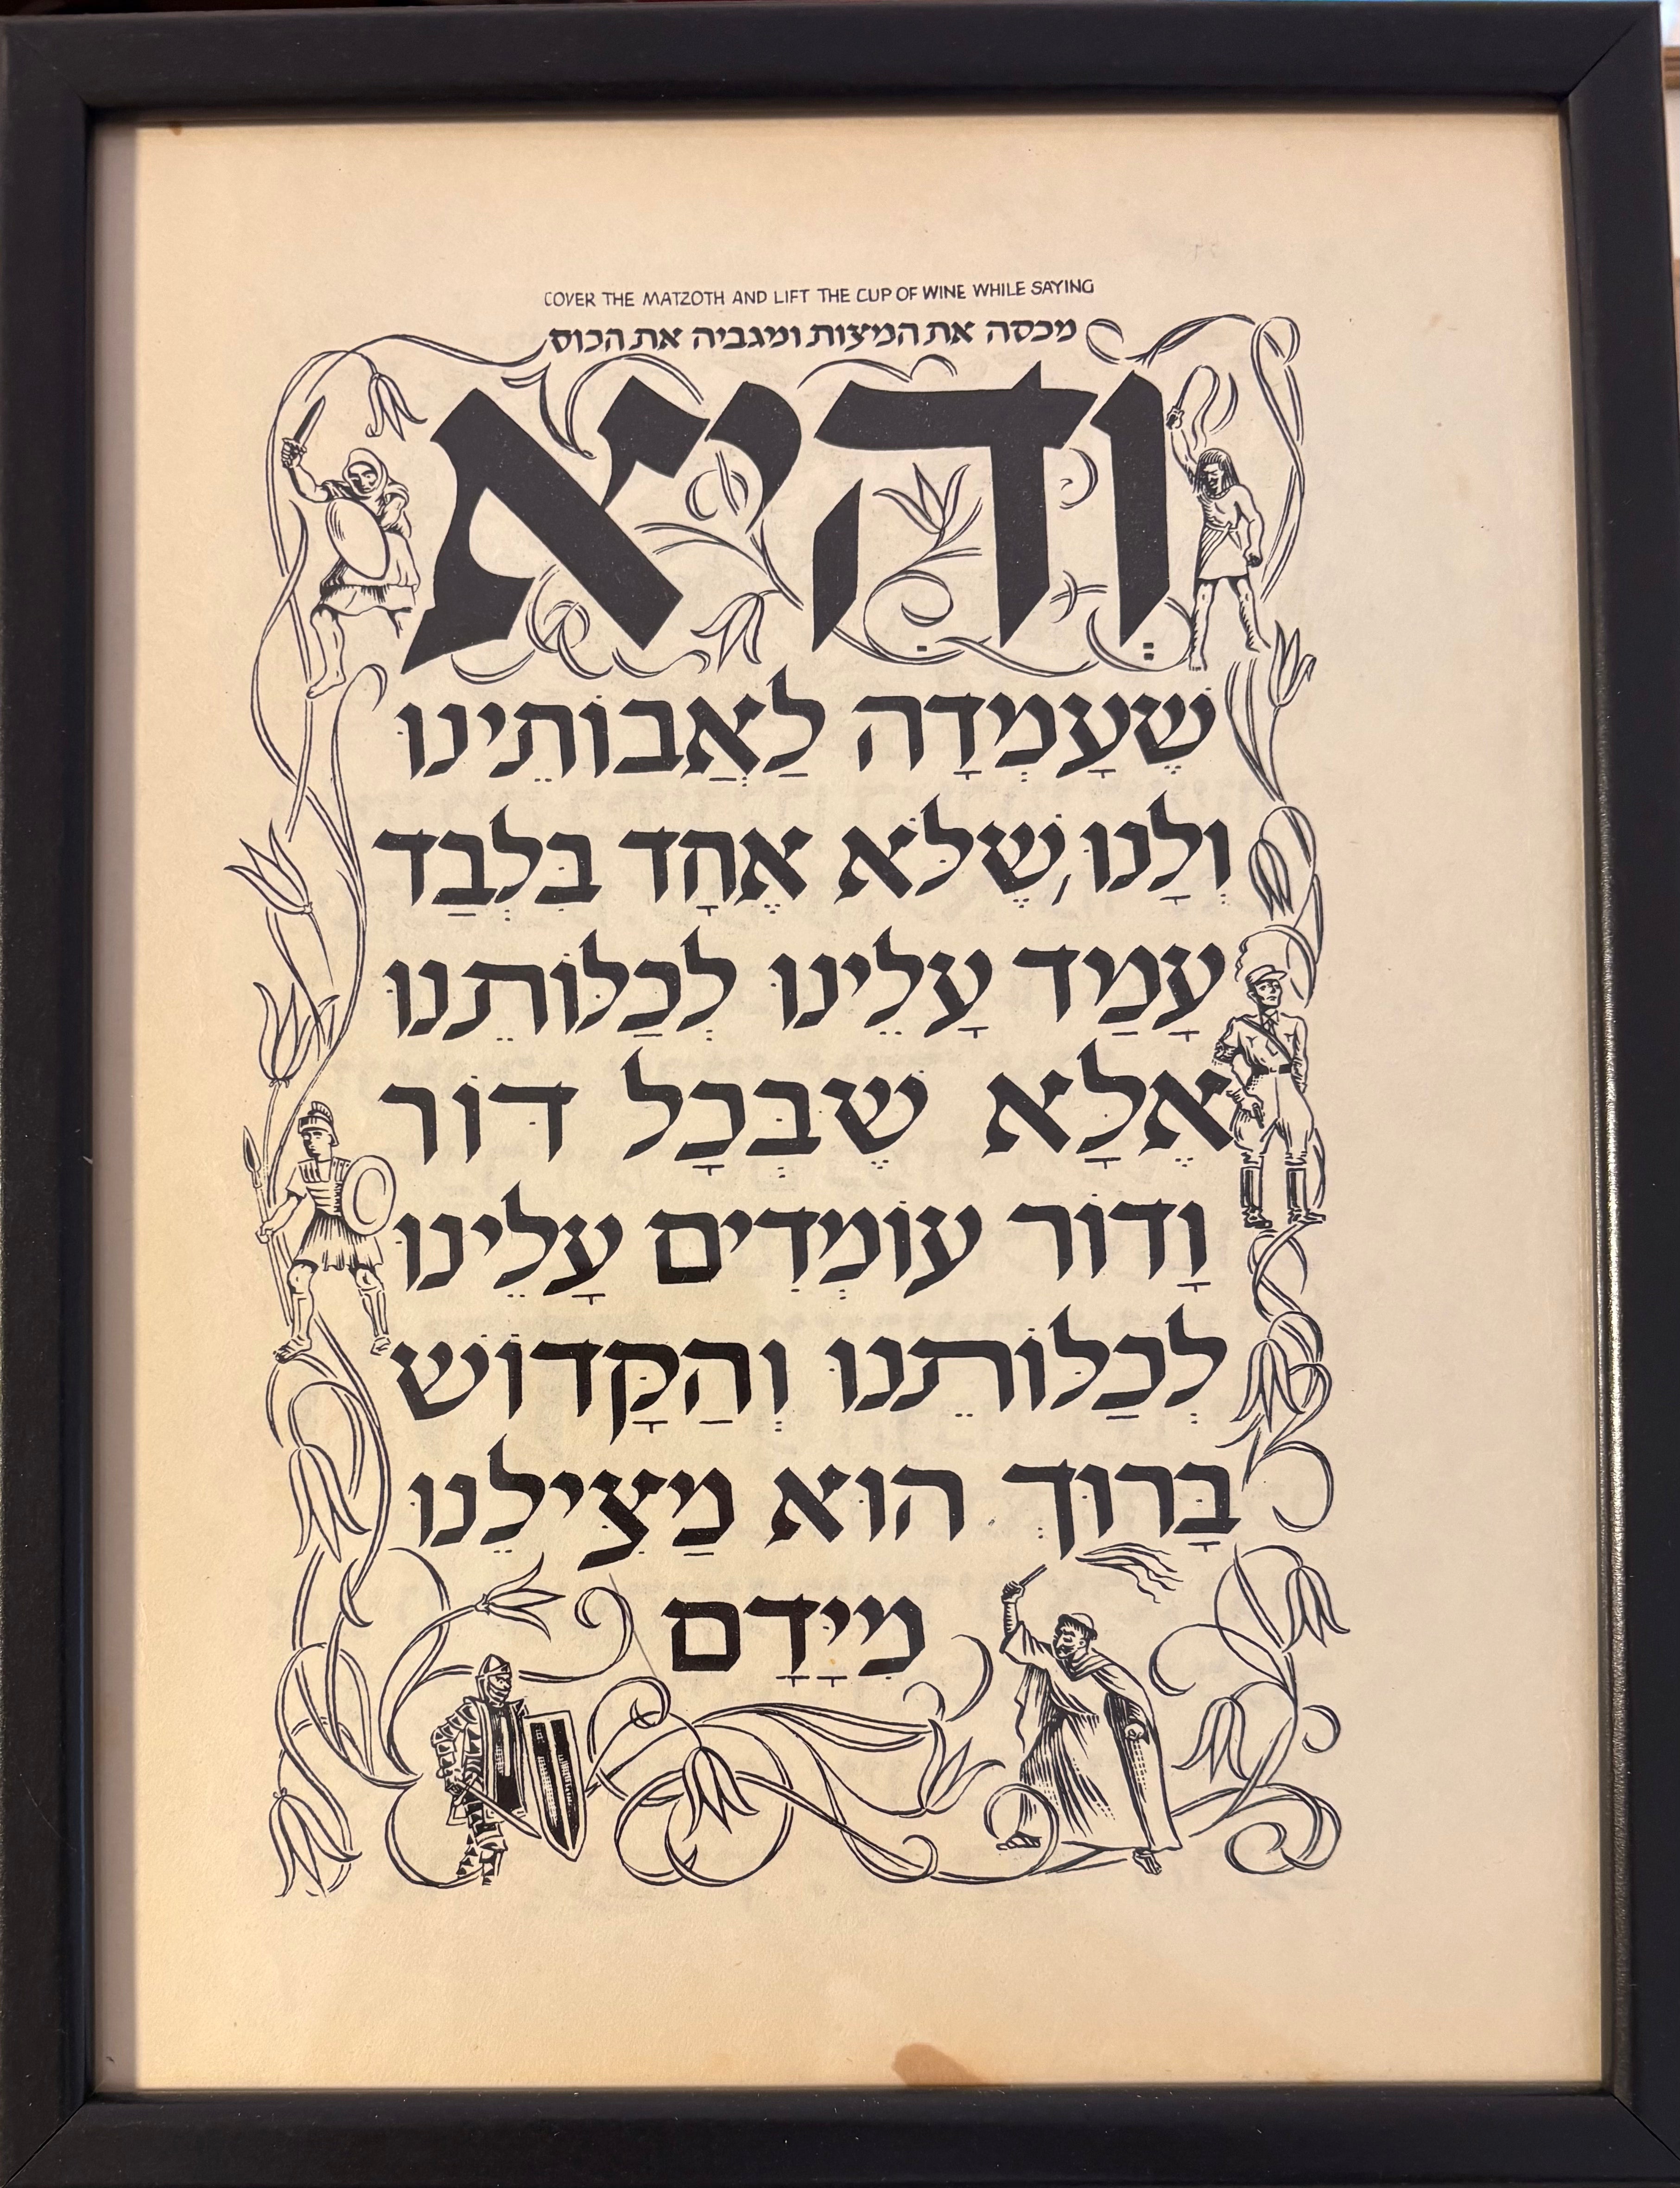 COVER THE MATZOTH AND LIFT THE CUP OF WINE WHILE SAYING
מכסה את המצות ומגביה את הכוס
וְהִיא
שֶׁעָמְדָה לַאֲבוֹתֵינוּ
וְלָנוּ, שֶׁלֹּא אֶחָד בִּלְבַד
עָמַד עָלֵינוּ לְכַלּוֹתֵנוּ
אֶלָּא שֶׁבְּכָל דּוֹר
וָדוֹר עוֹמְדִים עָלֵינוּ
לְכַלּוֹתֵנוּ וְהַקָּדוֹשׁ
בָּרוּךְ הוּא מַצִּילֵנוּ
מִיָּדָם